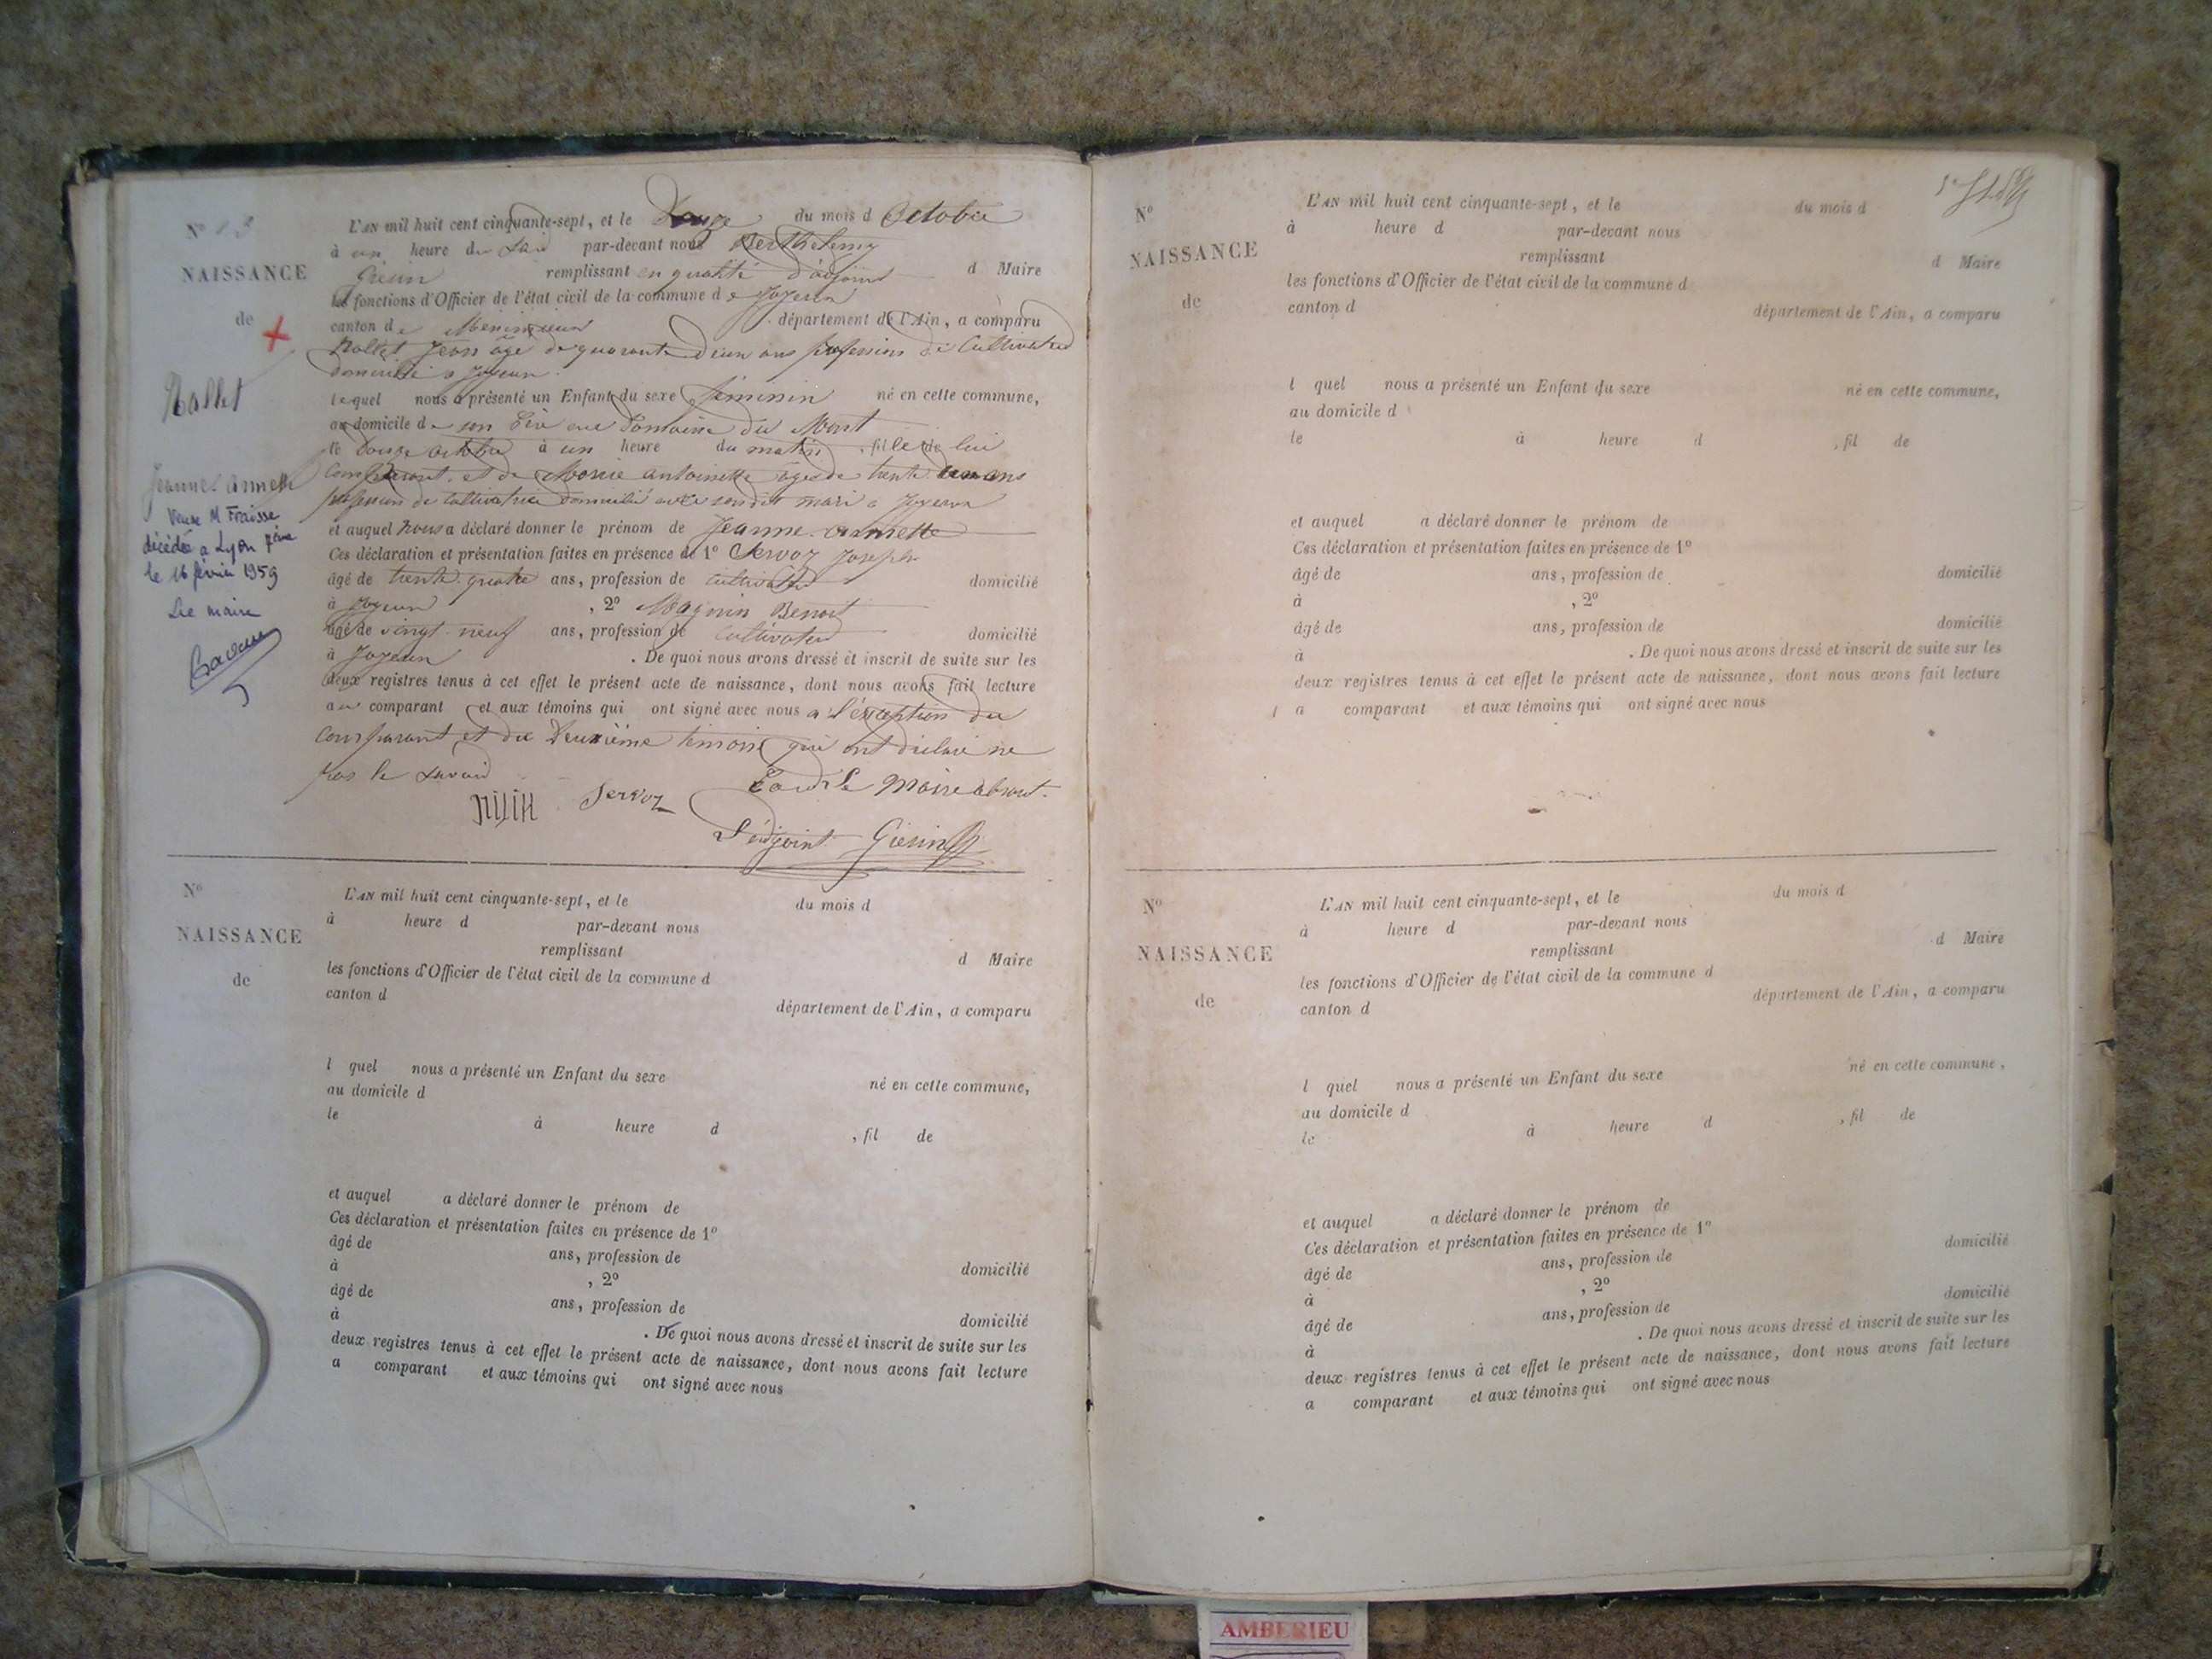 N° 13
NAISSANCE
de
Rallet
Jeanne Annette
Veuve M Fraisse
décédée à Lyon
le 16 février 1959
Le maire
L'AN mil huit cent cinquante-sept, et le Douze du mois d Octobre
à un heure du par-devant nous Berthelemy
remplissant en qualité d'adjoint d Maire
les fonctions d'Officier de l'état civil de la commune de Joyeux
canton de Meximieux département de l'Ain, a comparu
Rallet Jean âgé de quarante d'eux ans profession de Cultivateur
domicilié a Joyeux
lequel nous a présenté un Enfant du sexe féminin né en cette commune,
au domicile de son Père au Domaine du Mont
le Douze octobre à un heure du matin, fille de lui
Comparant, et de Marie Antoinette agée de trente ans
profession de Cultivatrice domicilié avec son dit mari a Joyeux
et auquel nous a déclaré donner le prénom de Jeanne Annette
Ces déclaration et présentation faites en présence de 1° Servoz Joseph
âgé de trente quatre ans, profession de cultivateur domicilié
à Joyeux, 2° Magnin Benoit
âgé de vingt neuf ans, profession de Cultivateur domicilié
à Joyeux. De quoi nous avons dressé et inscrit de suite sur les
deux registres tenus à cet effet le présent acte de naissance, dont nous avons fait lecture
au comparant et aux témoins qui ont signé avec nous a l'exception du
Comparant et du Deuxième temoin qui ont déclaré ne
pas le savoir
Servoz Pour Le Maire absent.
L'adjoint
N°
NAISSANCE
de
L'AN mil huit cent cinquante-sept, et le du mois d
à heure d par-devant nous
remplissant d Maire
les fonctions d'Officier de l'état civil de la commune d
canton d département de l'Ain, a comparu
l quel nous a présenté un Enfant du sexe né en cette commune,
au domicile d
le à heure d , fil de
et auquel a déclaré donner le prénom de
Ces déclaration et présentation faites en présence de 1°
âgé de ans, profession de domicilié
à , 2°
âgé de ans, profession de domicilié
à . De quoi nous avons dressé et inscrit de suite sur les
deux registres tenus à cet effet le présent acte de naissance, dont nous avons fait lecture
a comparant et aux témoins qui ont signé avec nous
N°
NAISSANCE
de
L'AN mil huit cent cinquante-sept, et le du mois d
à heure d par-devant nous
remplissant d Maire
les fonctions d'Officier de l'état civil de la commune d
canton d département de l'Ain, a comparu
l quel nous a présenté un Enfant du sexe né en cette commune,
au domicile d
le à heure d , fil de
et auquel a déclaré donner le prénom de
Ces déclaration et présentation faites en présence de 1°
âgé de ans, profession de domicilié
à , 2°
âgé de ans, profession de domicilié
à . De quoi nous avons dressé et inscrit de suite sur les
deux registres tenus à cet effet le présent acte de naissance, dont nous avons fait lecture
a comparant et aux témoins qui ont signé avec nous
N°
NAISSANCE
de
L'AN mil huit cent cinquante-sept, et le du mois d
à heure d par-devant nous
remplissant d Maire
les fonctions d'Officier de l'état civil de la commune d
canton d département de l'Ain, a comparu
l quel nous a présenté un Enfant du sexe né en cette commune,
au domicile d
le à heure d , fil de
et auquel a déclaré donner le prénom de
Ces déclaration et présentation faites en présence de 1°
âgé de ans, profession de domicilié
à , 2°
âgé de ans, profession de domicilié
à . De quoi nous avons dressé et inscrit de suite sur les
deux registres tenus à cet effet le présent acte de naissance, dont nous avons fait lecture
a comparant et aux témoins qui ont signé avec nous
AMBERIEU